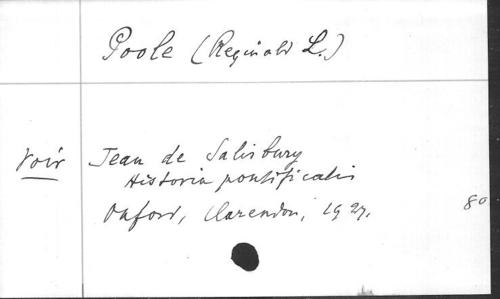 Poole (Reginald L.)
Voir Jean de Salisbury
Historia pontificalis
Oxford, Clarendon, 1927. 8o